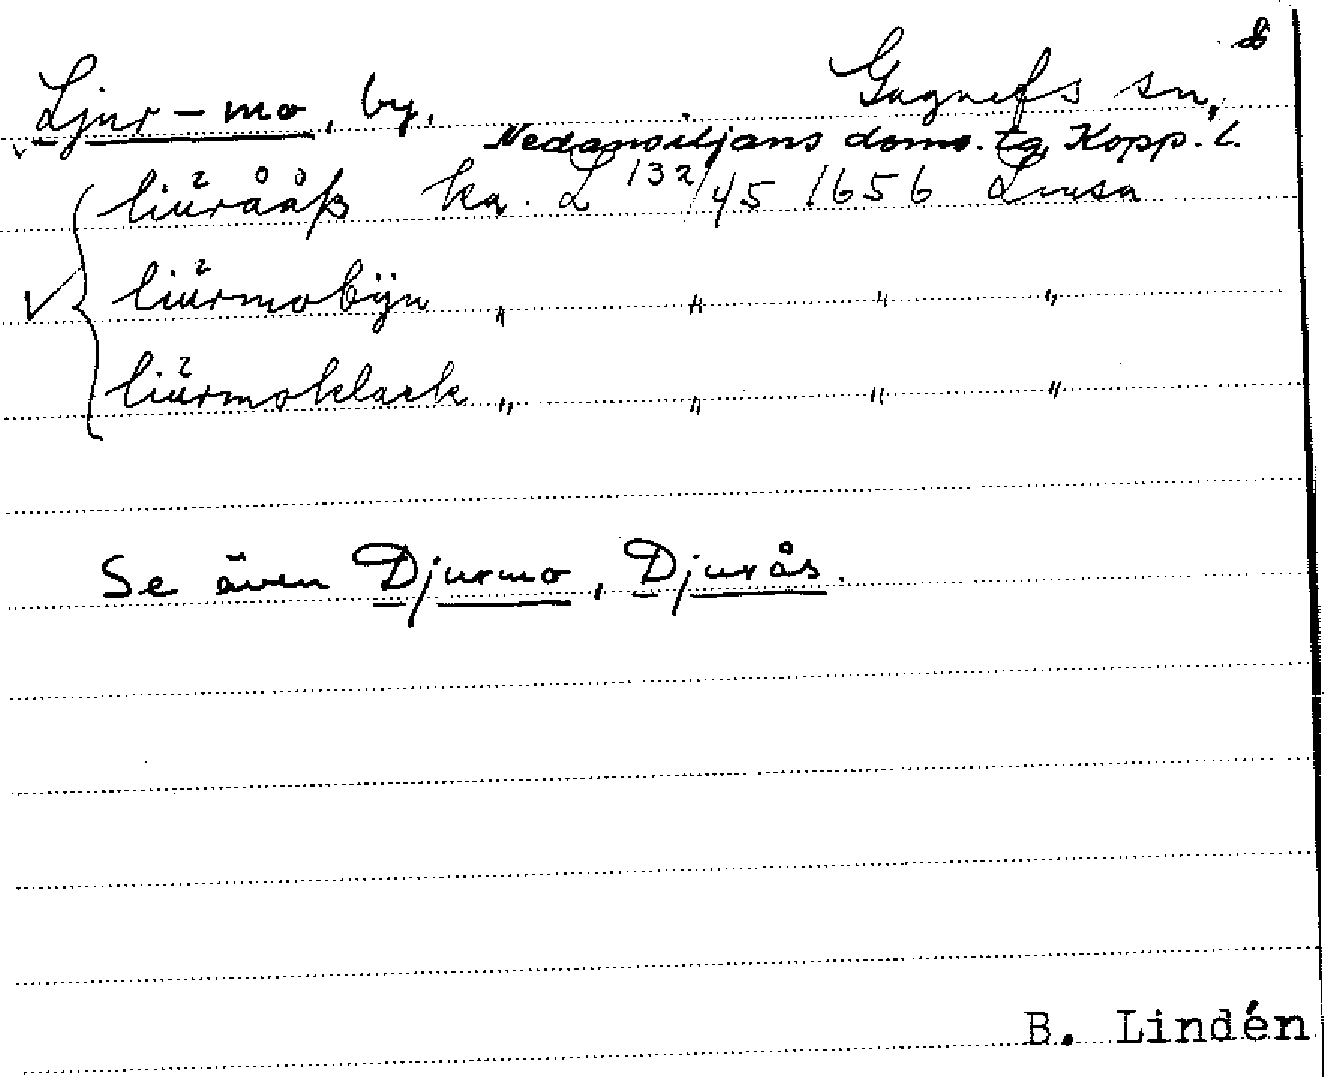 8
Ljur-mo, by. Gagnefs sn,
Nedansiljans doms. Kopp. l.
liŭrååß ka. L 132/45 1656 Lmsa
liŭrmobÿn " " " "
liŭrmoklack " " " "
Se även Djurmo, Djurås.
B. Lindén